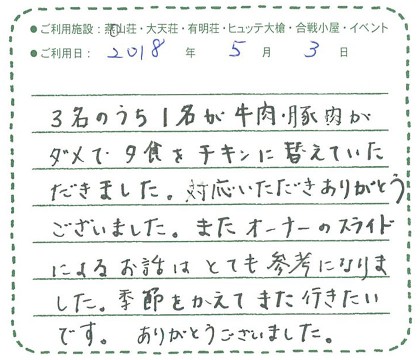 ●ご利用施設：燕山荘・大天荘・有明荘・ヒュッテ大槍・合戦小屋・イベント
●ご利用日： 2018 年 5 月 3 日
3名のうち1名が牛肉・豚肉が
ダメで夕食をチキンに替えていた
だきました。対応いただきありがとう
ございました。またオーナーのスライド
によるお話はとても参考になりま
した。季節をかえてまた行きたい
です。 ありがとうございました。